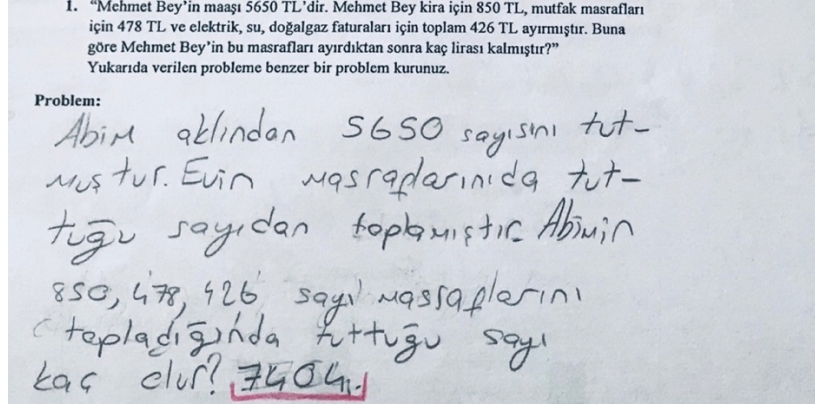 1. "Mehmet Bey'in maaşı 5650 TL'dir. Mehmet Bey kira için 850 TL, mutfak masrafları
için 478 TL ve elektrik, su, doğalgaz faturaları için toplam 426 TL ayırmıştır. Buna
göre Mehmet Bey'in bu masrafları ayırdıktan sonra kaç lirası kalmıştır?"
Yukarıda verilen probleme benzer bir problem kurunuz.
Problem:
Abim aklından 5650 sayısını tut-
muştur. Evin masraplarınıda tut-
tuğu sayıdan toplamıştır. Abimin
850, 478, 426 sayı massaplarını
topladığında tuttuğu sayı
kaç olur? 7404.